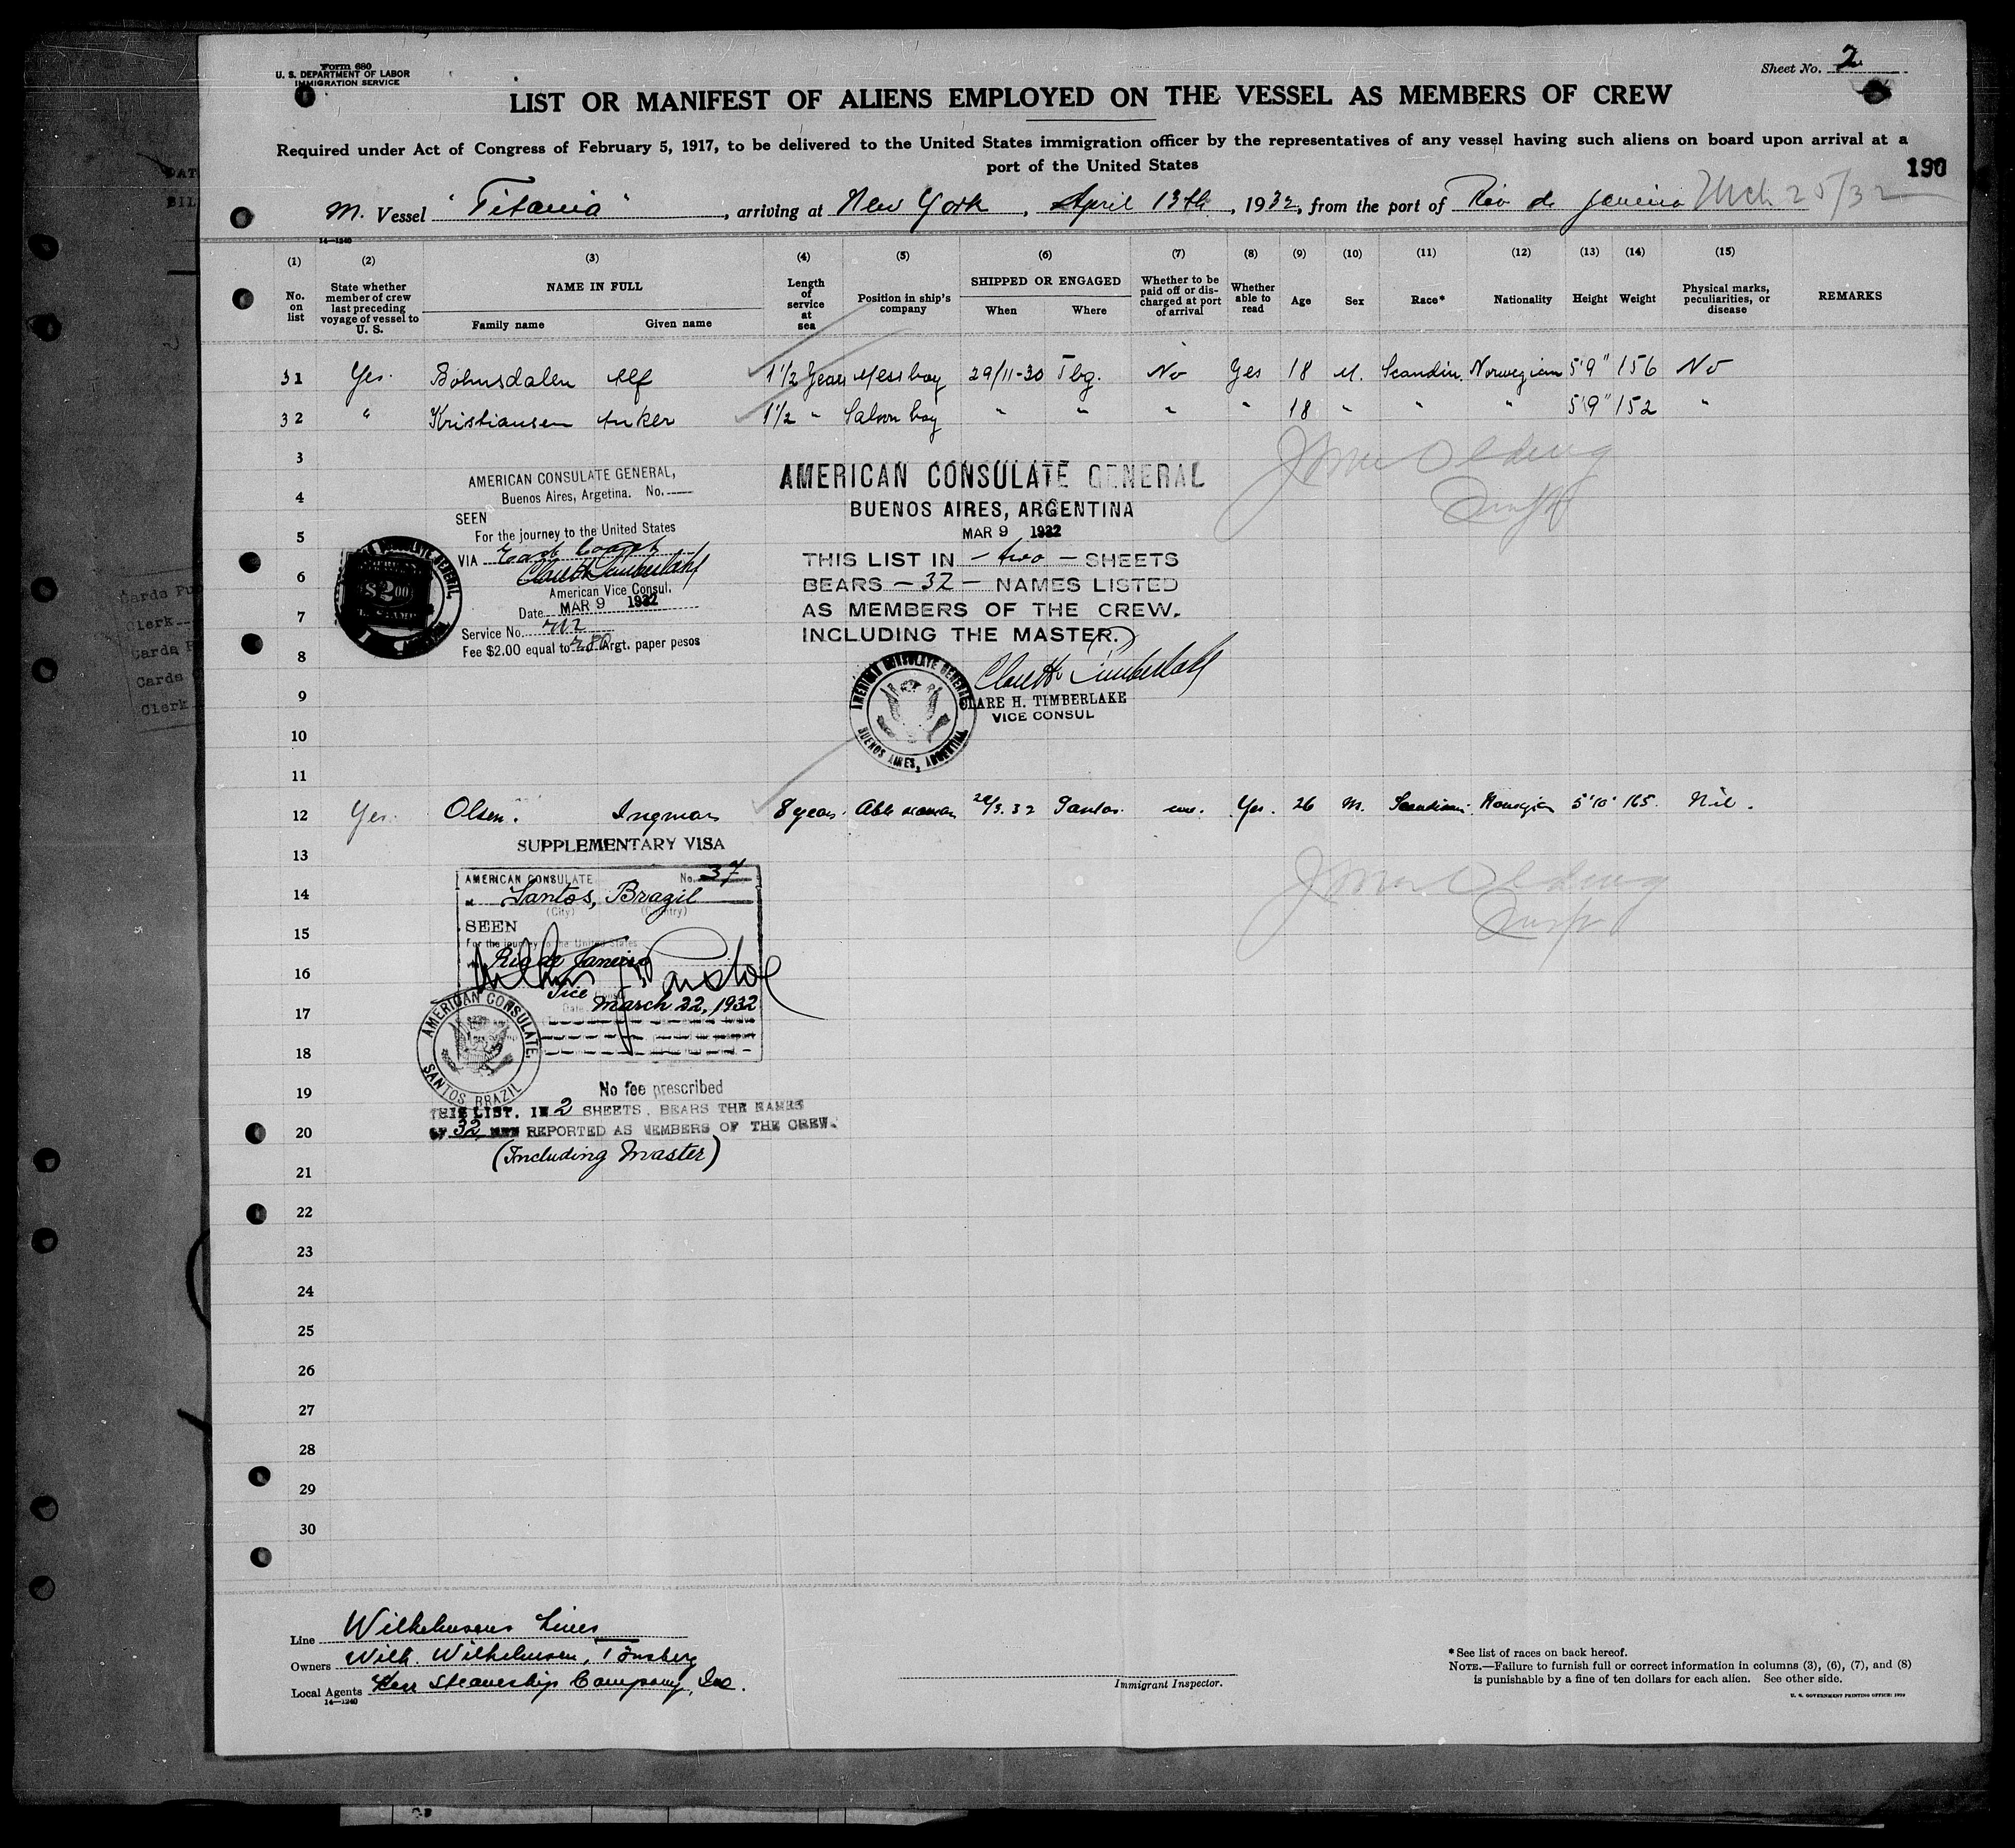 Form 680
U. S. DEPARTMENT OF LABOR
IMMIGRATION SERVICE
Sheet No. 2
LIST OR MANIFEST OF ALIENS EMPLOYED ON THE VESSEL AS MEMBERS OF CREW
Required under Act of Congress of February 5, 1917, to be delivered to the United States immigration officer by the representatives of any vessel having such aliens on board upon arrival at a
port of the United States
190
M. Vessel "Titania", arriving at New York, April 13th, 1932, from the port of Rio de Janeiro Mch 25/32
14—1240
(1) (2) (3) (4) (5) (6) (7) (8) (9) (10) (11) (12) (13) (14) (15)
No. on list
State whether member of crew last preceding voyage of vessel to U. S.
NAME IN FULL
Family name Given name
Length of service at sea
Position in ship's company
SHIPPED OR ENGAGED
When Where
Whether to be paid off or discharged at port of arrival
Whether able to read
Age Sex Race* Nationality Height Weight
Physical marks, peculiarities, or disease
REMARKS
31 Yes. Bohnsdalen Alf 1 1/2 Years Messboy 29/11-30 Tbg. No Yes 18 M. Scandin. Norwegian 5'9" 156 No
32 " Kristiansen Anker 1 1/2 " Saloon boy " " " " 18 " " " 5'9" 152 "
3
4
5
6
7
8
9
10
11
AMERICAN CONSULATE GENERAL,
Buenos Aires, Argetina. No.
SEEN
For the journey to the United States
VIA East Coast
American Vice Consul.
Date MAR 9 1932
Service No. 712
Fee $2.00 equal to Argt. paper pesos
$2.00
AMERICAN CONSULATE GENERAL
BUENOS AIRES, ARGENTINA
MAR 9 1932
THIS LIST IN - two - SHEETS
BEARS - 32 - NAMES LISTED
AS MEMBERS OF THE CREW.
INCLUDING THE MASTER.
Clare H. Timberlake
CLARE H. TIMBERLAKE
VICE CONSUL
AMERICAN CONSULATE GENERAL
BUENOS AIRES, ARGENTINA
12 Yes. Olsen. Ingmar 8 years Able seaman /3.32 Santos. Yes. 26 M. Scandinav. Norwegian 5'10" 165. Nil.
13
14
15
16
17
18
19
20
21
22
23
24
25
26
27
28
29
30
SUPPLEMENTARY VISA
AMERICAN CONSULATE No. 37
Santos, Brazil
(City) (Country)
SEEN
For the journey to the United States
Rio de Janeiro
Vice
Date March 22, 1932
AMERICAN CONSULATE.
SANTOS BRAZIL
No fee prescribed
THIS LIST, IN 2 SHEETS, BEARS THE NAMES
OF 32 MEN REPORTED AS MEMBERS OF THE CREW.
(Including Master)
Line Wilhelmsens Lines
Owners Wilh. Wilhelmsen, Tönsberg
Local Agents Kerr Steamship Company, Inc.
14—1240
Immigrant Inspector.
*See list of races on back hereof.
NOTE.—Failure to furnish full or correct information in columns (3), (6), (7), and (8)
is punishable by a fine of ten dollars for each alien. See other side.
U. S. GOVERNMENT PRINTING OFFICE: 1929